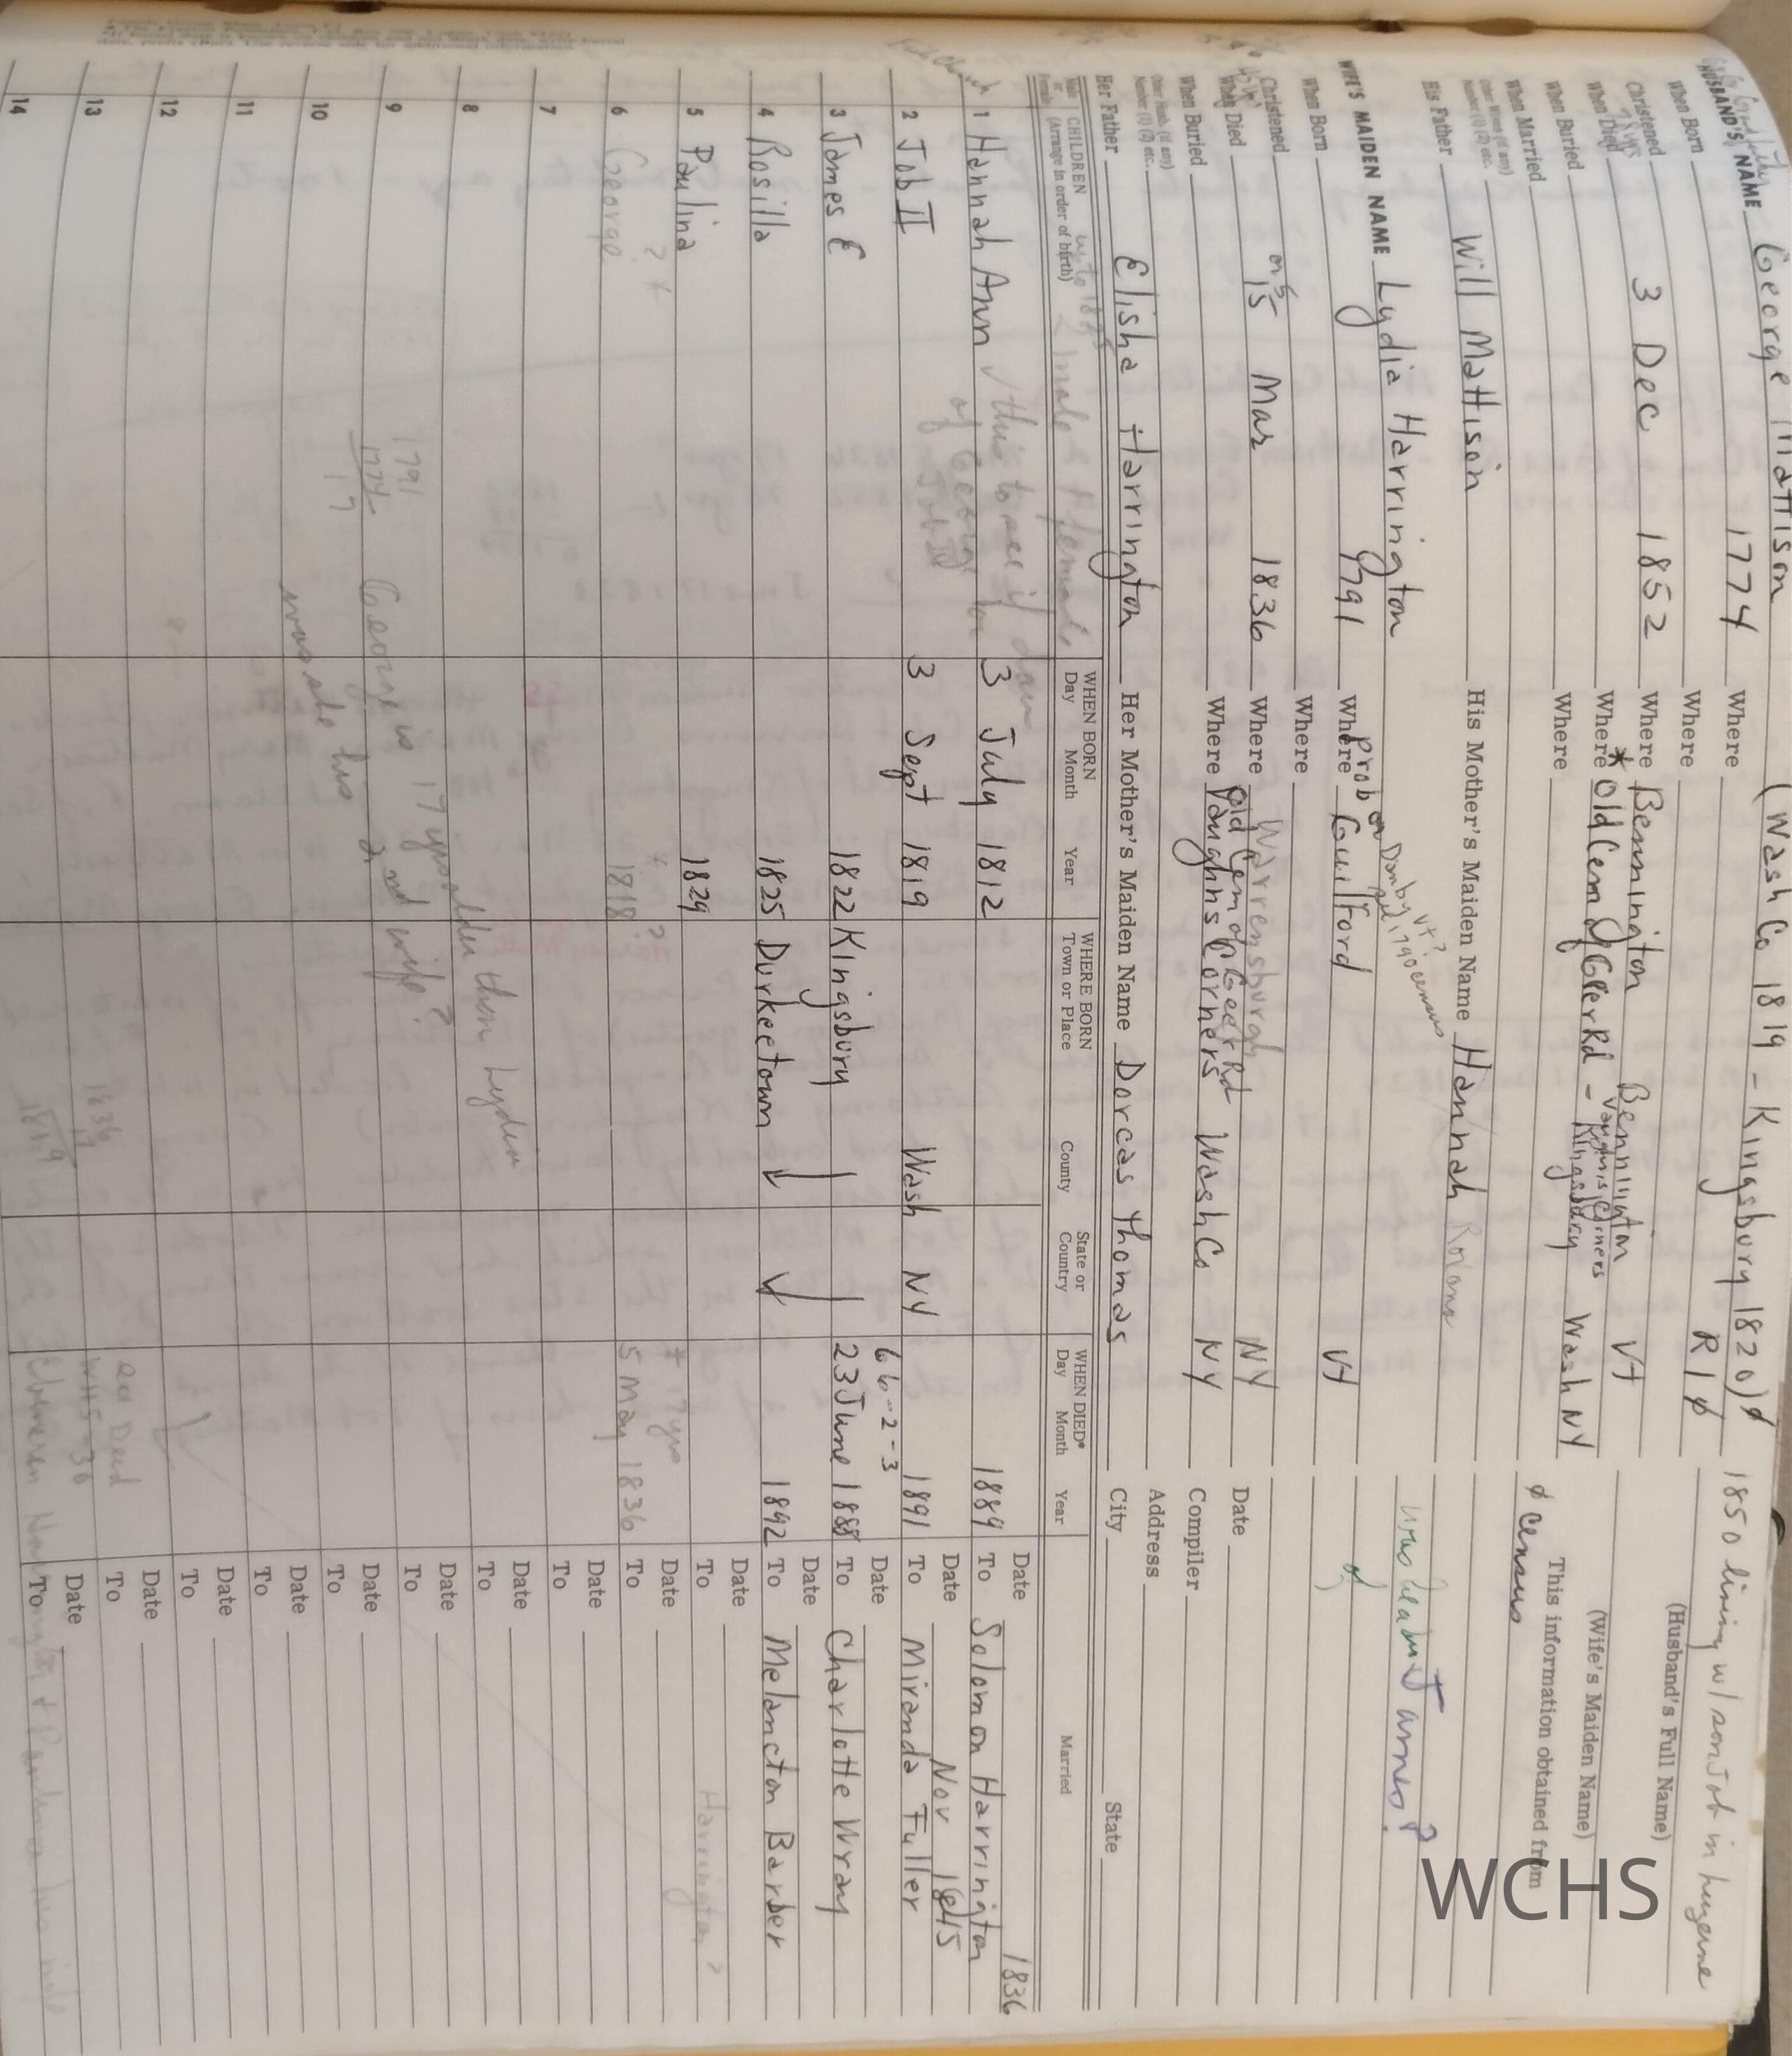 HUSBAND'S NAME George Mattison (Wash Co 1819 - Kingsbury 1820)ø
When Born 1774 Where RIø
Christened Where
When Died 3 Dec 1852 Where Bennington Bennington Vt
When Buried Where *Old Cem Geer Rd - Vaughns Corners Kingsbury Wash NY
When Married Where
Other Wives (if any) Number (1) (2) etc.
His Father Will Mattison His Mother's Maiden Name Hannah
WIFE'S MAIDEN NAME Lydia Harrington
Danby Vt?
1790 census
When Born 1791 Where prob Guilford Vt
Christened Where
When Died or 5 15 Mar 1836 Where Warrensburgh NY
When Buried Where Old Cem on Geer Rd Vaughns Corners Wash Co NY
Other Husb. (if any) Number (1) (2) etc.
Her Father Elisha Harrington Her Mother's Maiden Name Dorcas Thomas
1850 living w/ son Job in Luzerne
(Husband's Full Name)
(Wife's Maiden Name)
This information obtained from
ø census
James?
Date
Compiler
Address
City State
Male or Female CHILDREN (Arrange in order of birth) WHEN BORN Day Month Year WHERE BORN Town or Place County State or Country WHEN DIED* Day Month Year Married
up to 1825 2 male 2 female
1 Hannah Ann 3 July 1812 1889 Date 1836 To Solomon Harrington
✓ this to see if dau of George or Job II
2 Job II 3 Sept 1819 Wash NY 1891 Date Nov 1845 To Miranda Fuller
66-2-3
3 James E 1822 Kingsbury 23 June 1888 Date To Charlotte Wray
4 Rosilla 1825 Durkeetown 1892 Date To Melancton Barber
5 Paulina 1829 Date To Harrington?
6 George ?* * 1818? * 17 yrs 5 May 1836 Date To
7 Date To
8 Date To
9 Date To
10 Date To
11 Date To
12 Date To
13 Date To
14 Date To
1791
1774
17
George is 17 yrs older than Lydia
was she his 2nd wife?
1836
17
1819
WHS-36
WCHS